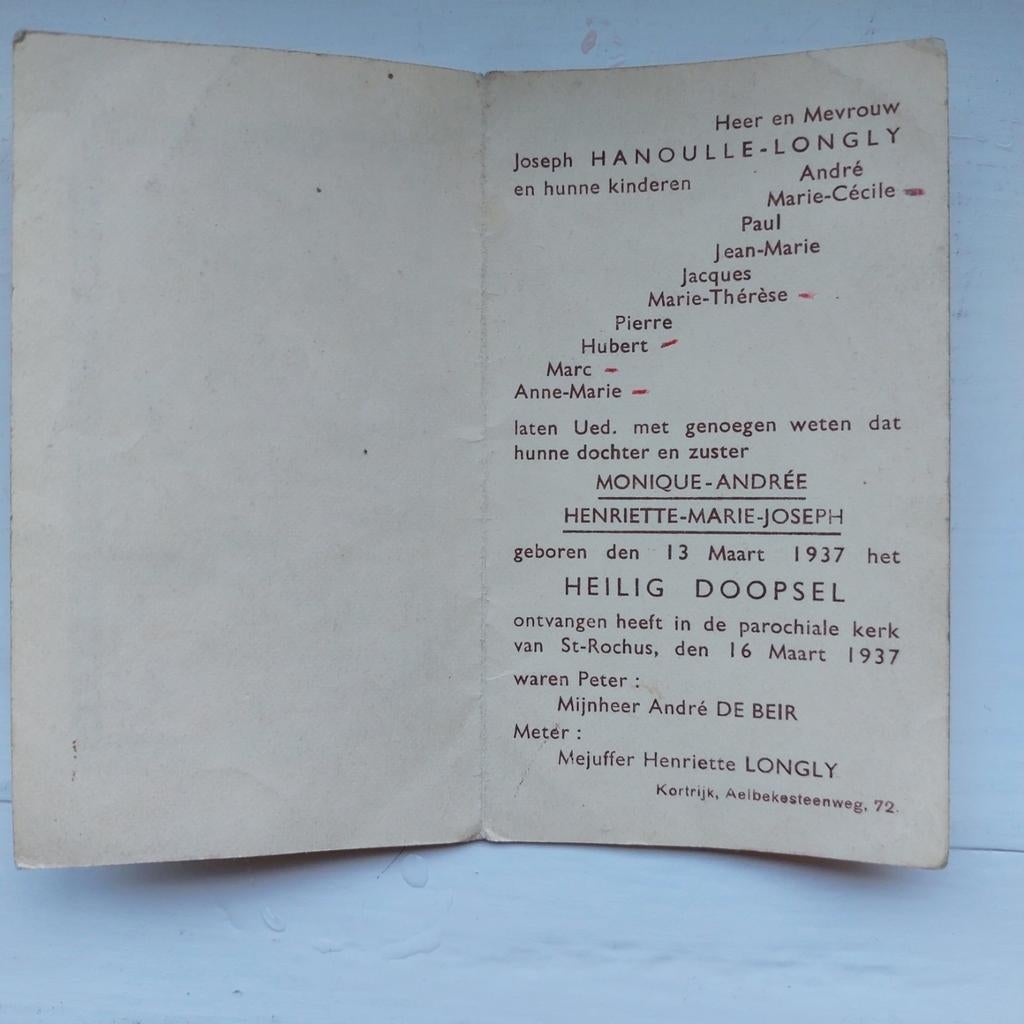 Heer en Mevrouw
Joseph HANOULLE-LONGLY
en hunne kinderen André
Marie-Cécile
Paul
Jean-Marie
Jacques
Marie-Thérèse
Pierre
Hubert
Marc
Anne-Marie
laten Ued. met genoegen weten dat
hunne dochter en zuster
MONIQUE-ANDRÉE
HENRIETTE-MARIE-JOSEPH
geboren den 13 Maart 1937 het
HEILIG DOOPSEL
ontvangen heeft in de parochiale kerk
van St-Rochus, den 16 Maart 1937
waren Peter :
Mijnheer André DE BEIR
Meter :
Mejuffer Henriette LONGLY
Kortrijk, Aelbekesteenweg, 72.